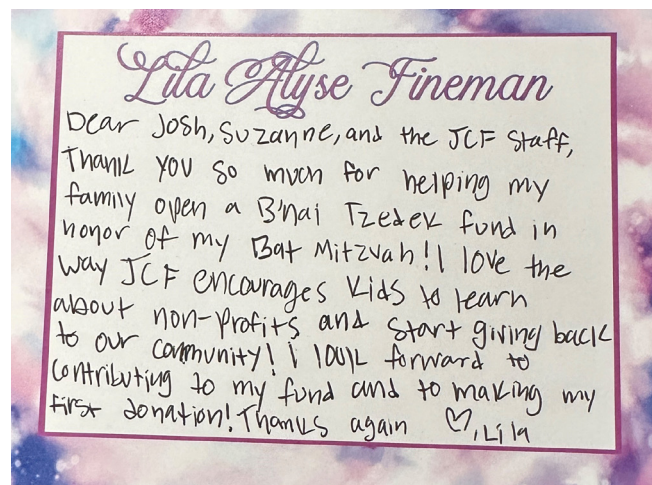 Lila Alyse Fineman
Dear Josh, Suzanne, and the JCF Staff,
Thank you so much for helping my
family open a B'nai Tzedek fund in
honor of my Bat Mitzvah! I love the
way JCF encourages kids to learn
about non-profits and start giving back
to our community! i look forward to
contributing to my fund and to making my
first donation! Thanks again ♡, Lila